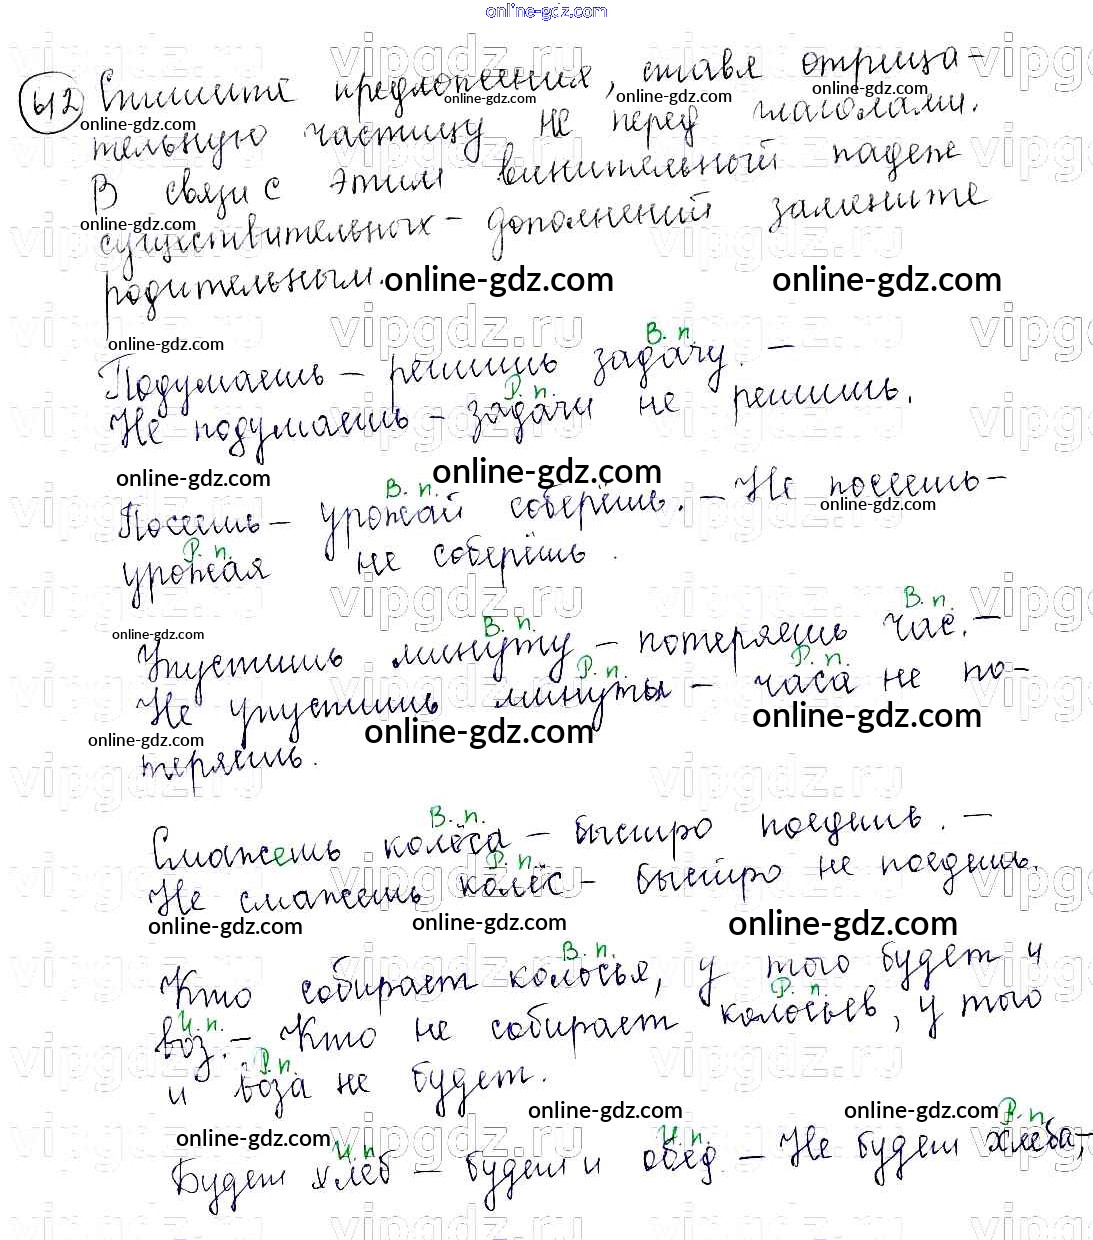 online-gdz.com
412 Спишите предложения, ставя отрица-
тельную частицу не перед глаголами.
В связи с этим винительный падеж
существительных - дополнений замените
родительным.
online-gdz.com online-gdz.com
В. п.
Подумаешь – решишь задачу. –
Р. п.
Не подумаешь – задачи не решишь.
online-gdz.com online-gdz.com
В. п.
Посеешь – урожай соберёшь. – Не посеешь –
Р. п.
урожая не соберёшь.
В. п. В. п.
Упустишь минуту – потеряешь час. –
Р. п. Р. п.
Не упустишь минуты – часа не по-
online-gdz.com online-gdz.com online-gdz.com
теряешь.
В. п.
Смажешь колёса – быстро поедешь. –
Р. п.
Не смажешь колёс – быстро не поедешь.
online-gdz.com online-gdz.com online-gdz.com
В. п.
Кто собирает колосья, у того будет и
И. п. Р. п.
воз. – Кто не собирает колосьев, у того
Р. п.
и воза не будет.
online-gdz.com online-gdz.com online-gdz.com
И. п. И. п. Р. п.
Будет хлеб – будет и обед – Не будет хлеба,–
vipgdz.ru